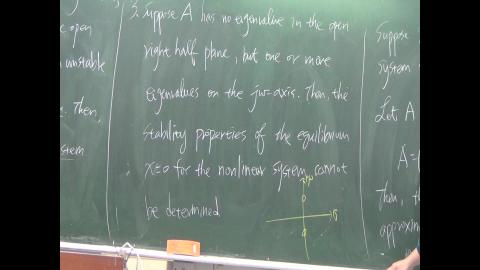 e open
unstable
e. Then,
stem
3. Suppose A has no eigenvalue in the open
right half plane, but one or more
eigenvalues on the jw-axis. Then, the
stability properties of the equilibrium
x=0 for the nonlinear system cannot
be determined
jw
σ
Suppose
system
Let A
A=
then, t
approxim